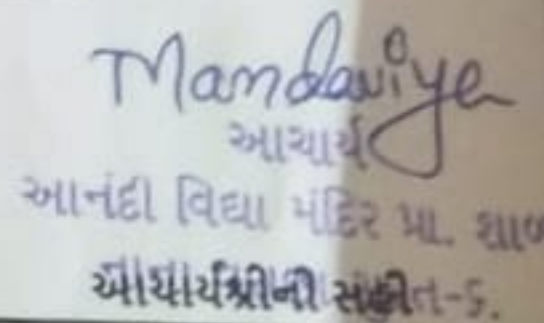 Mandaviya
આચાર્ય
આનંદી વિદ્યા મંદિર પ્રા. શાળ
આચાર્યશ્રીની સહી